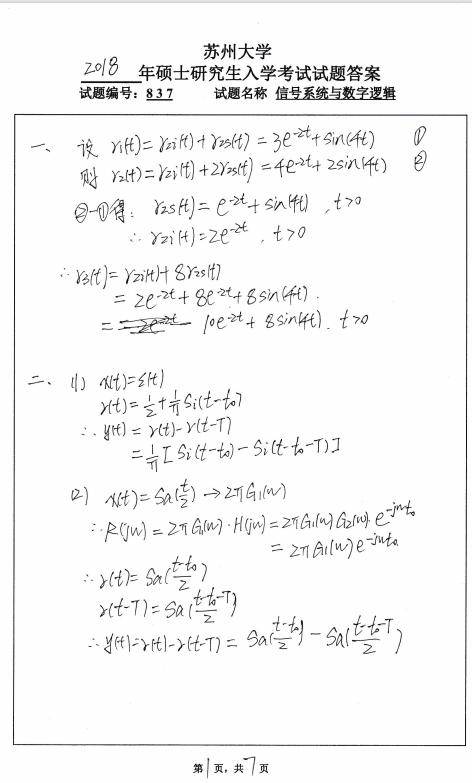 苏州大学
2018 年硕士研究生入学考试试题答案
试题编号：837 试题名称 信号系统与数字逻辑
一、设 r₁(t)=rzi(t)+rzs(t)=3e^{-2t}+sin(4t) ①
则 r₂(t)=rzi(t)+2rzs(t)=4e^{-2t}+2sin(4t) ②
②-①得: rzs(t)=e^{-2t}+sin(4t) , t>0
∴ rzi(t)=2e^{-2t} , t>0
∴ r₃(t)=rzi(t)+8rzs(t)
=2e^{-2t}+8e^{-2t}+8sin(4t).
= 10e^{-2t}+8sin(4t). t>0
二、(1) x(t)=ε(t)
r(t)=1/2+1/π Si(t-t₀)
∴ y(t)=r(t)-r(t-T)
=1/π[Si(t-t₀)-Si(t-t₀-T)]
(2) x(t)=Sa(t/2)→2πG₁(w)
∴ R(jw)=2πG₁(w)·H(jw)=2πG₁(w)G₂(w).e^{-jwt₀}
=2πG₁(w)e^{-jwt₀}
∴ r(t)=Sa((t-t₀)/2)
r(t-T)=Sa((t-t₀-T)/2)
∴ y(t)=r(t)-r(t-T)=Sa((t-t₀)/2)-Sa((t-t₀-T)/2)
第1页，共7页